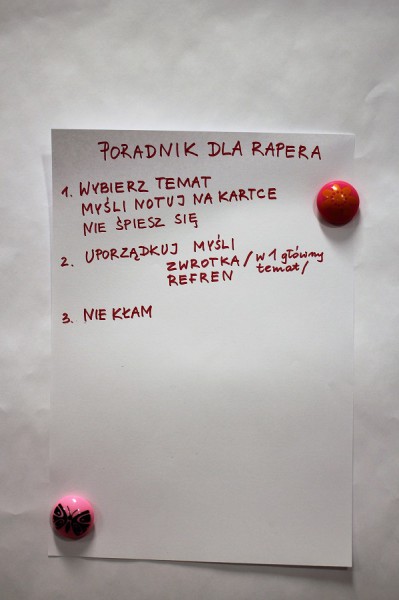 PORADNIK DLA RAPERA
1. WYBIERZ TEMAT
MYŚLI NOTUJ NA KARTCE
NIE ŚPIESZ SIĘ
2. UPORZĄDKUJ MYŚLI
ZWROTKA / w 1 główny
REFREN temat /
3. NIE KŁAM